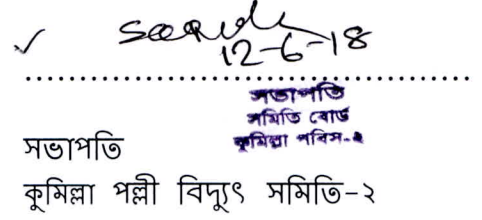 12-6-18
সভাপতি
সমিতি বোর্ড
কুমিল্লা পবিস-২
সভাপতি
কুমিল্লা পল্লী বিদ্যুৎ সমিতি-২